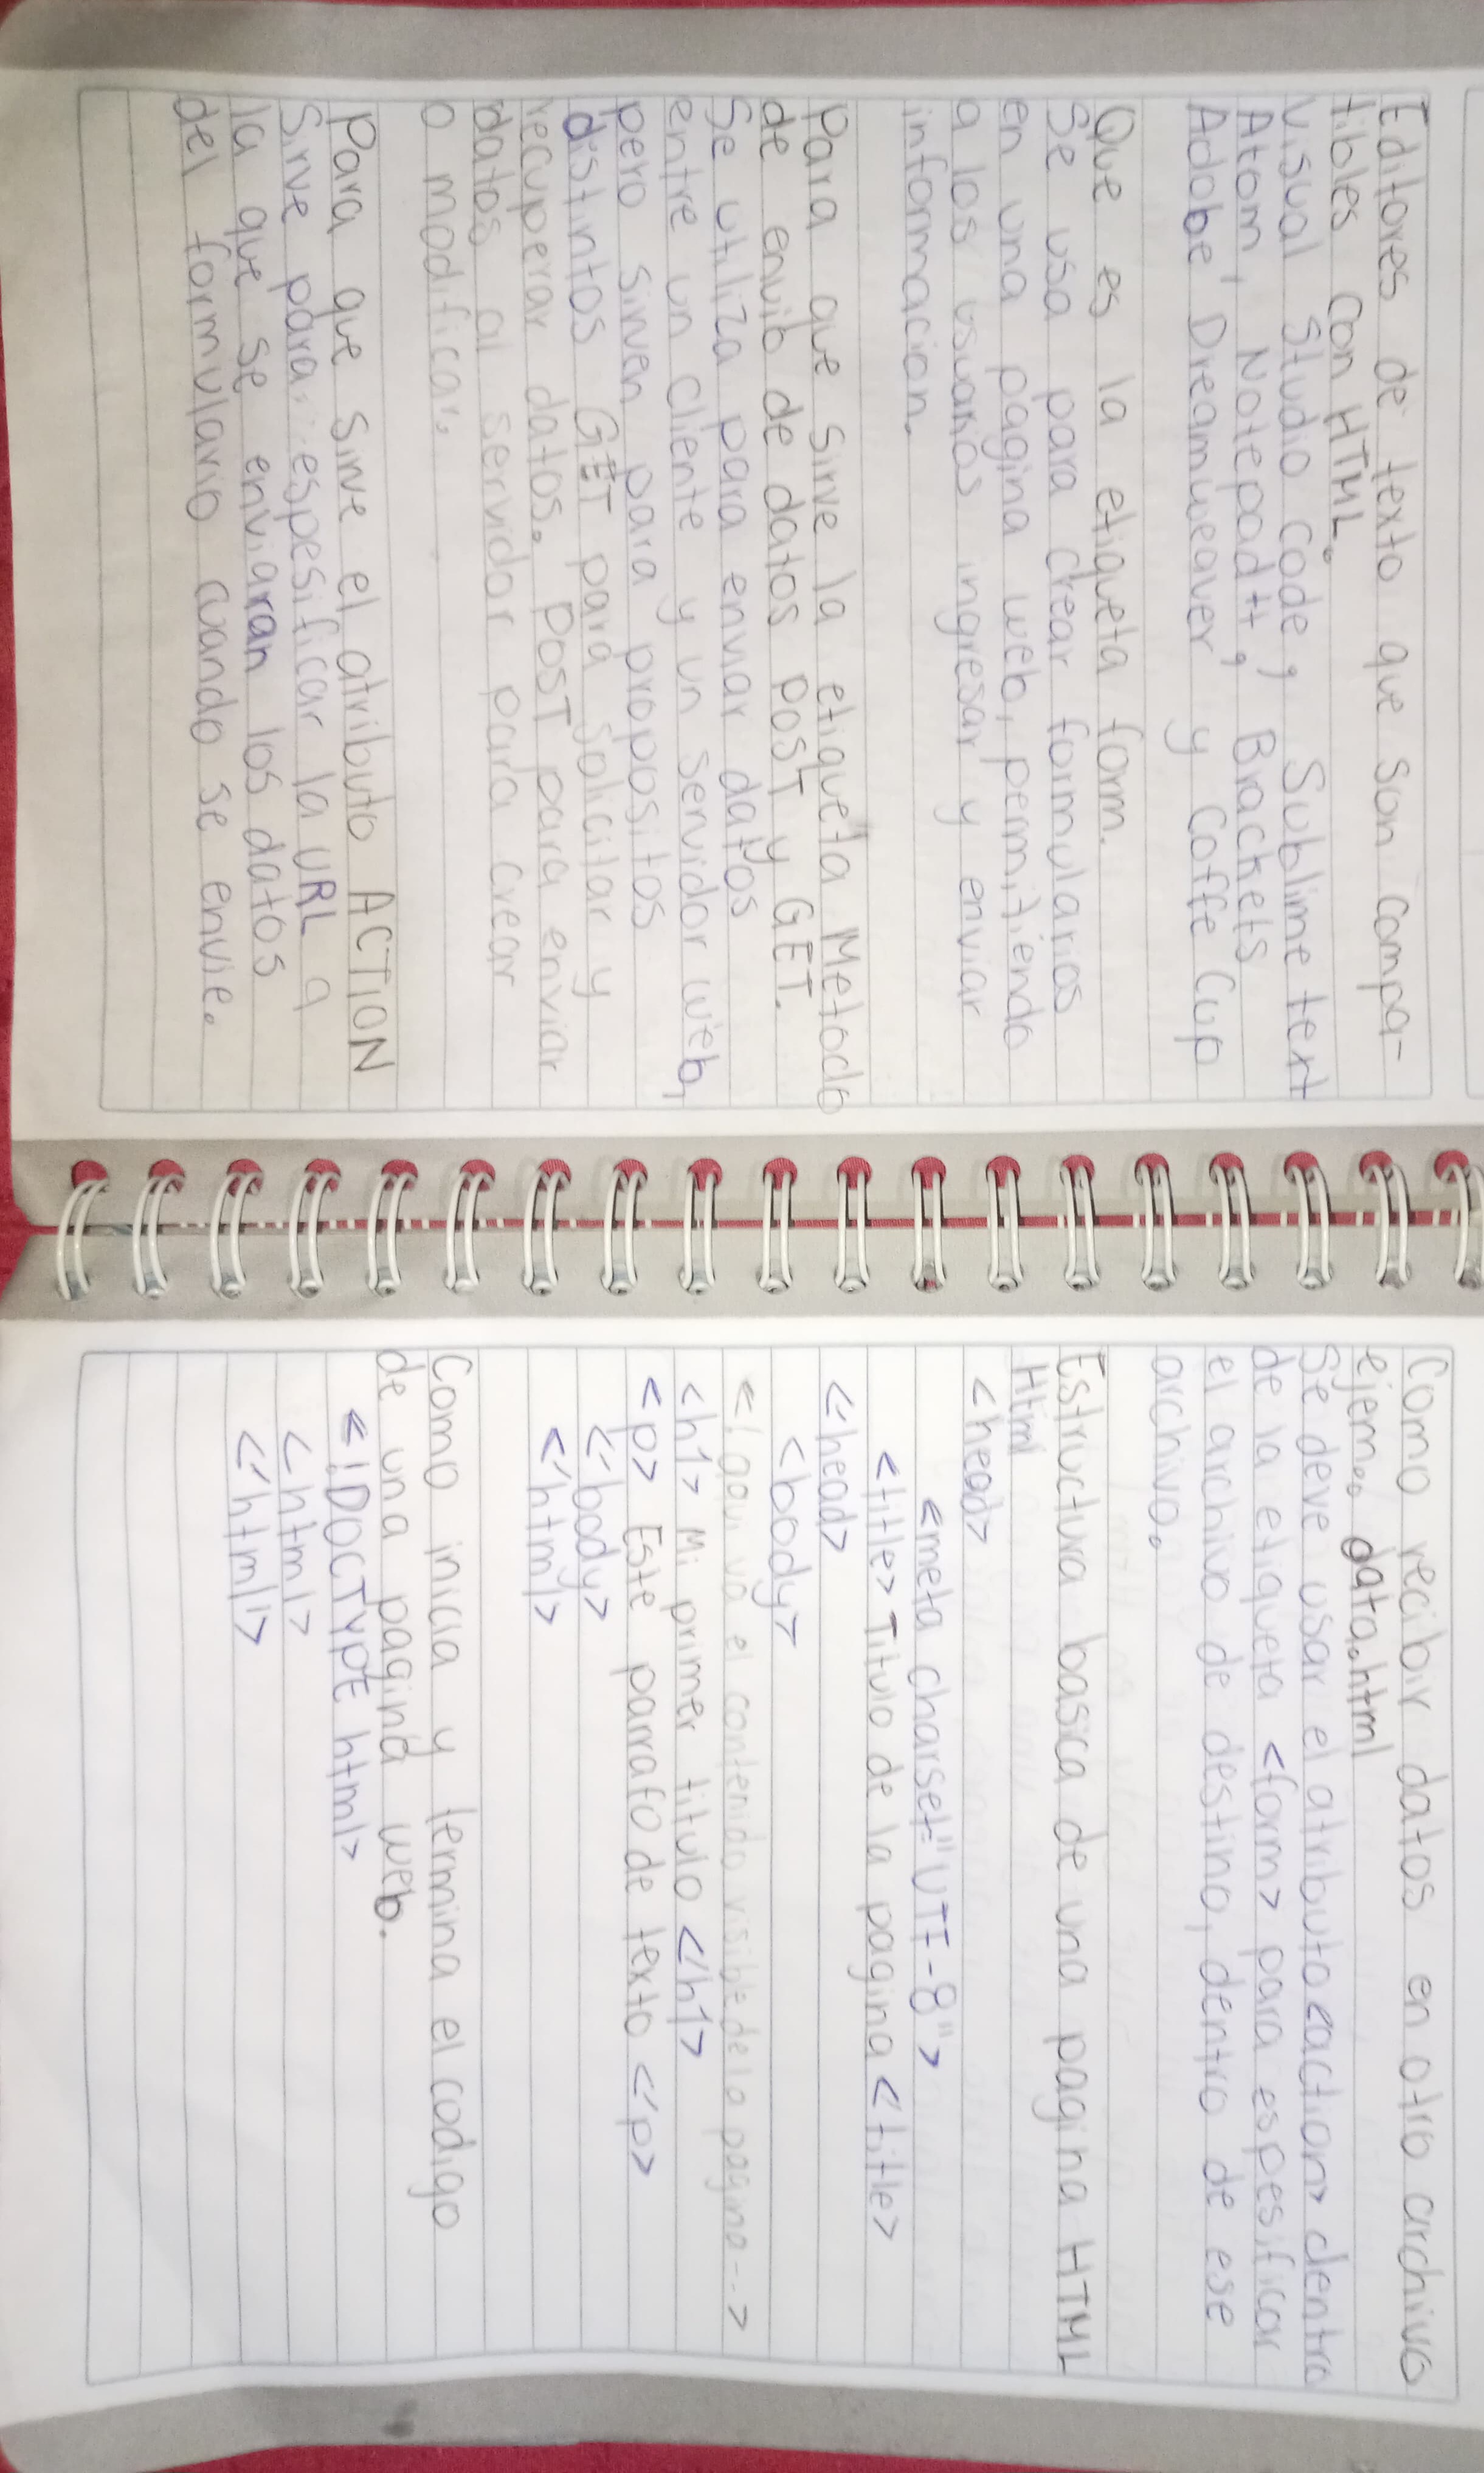 Editores de texto que son compa-
tibles con HTML.
Visual Studio Code, Sublime text
Atom, Notepad++, Brackets
Adobe Dreamweaver y Coffe Cup
Que es la etiqueta form.
Se usa para crear formularios
en una pagina web, permitiendo
a los usuarios ingresar y enviar
informacion.
Para que sirve la etiqueta Metodo
de envio de datos POST y GET.
Se utiliza para enviar datos
entre un cliente y un servidor web,
pero sirven para propositos
distintos GET para solicitar y
recuperar datos. POST para enviar
datos al servidor para crear
o modificar.
Para que sirve el atributo ACTION
Sirve para espesificar la URL a
la que se enviaran los datos
del formulario cuando se envie.
Como recibir datos en otro archivo
ejem. data.html
Se deve usar el atributo <action> dentro
de la etiqueta <form> para espesificar
el archivo de destino, dentro de ese
archivo.
Estructura basica de una pagina HTML
Html
<head>
<meta charset="UTF-8">
<title> Titulo de la pagina <title>
</head>
<body>
<!aqui va el contenido visible de la pagina-->
<h1> Mi primer titulo </h1>
<p> Este parafo de texto </p>
</body>
</html>
Como inicia y termina el codigo
de una pagina web.
<!DOCTYPE html>
<html>
</html>